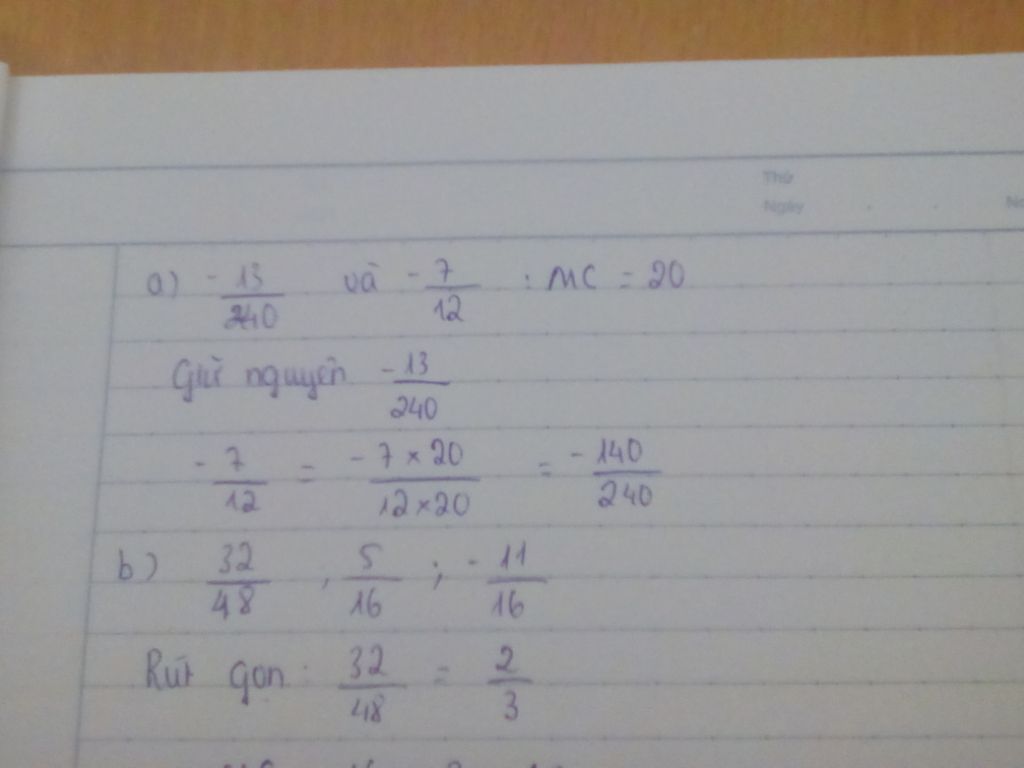 Thứ
Ngày
a) -13/240 và -7/12 : MC = 20
Giữ nguyên -13/240
-7/12 = -7×20/12×20 = -140/240
b) 32/48 , 5/16 ; -11/16
Rút gọn : 32/48 = 2/3